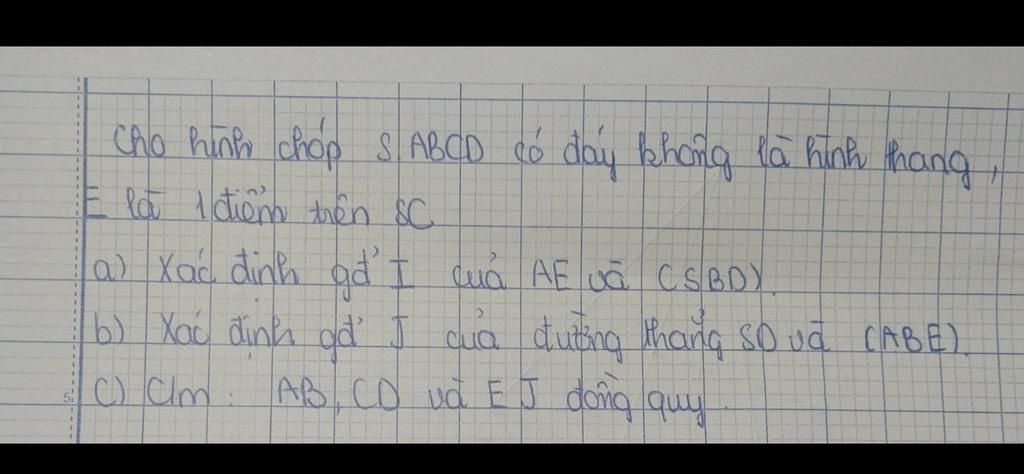 Cho hình chóp S ABCD có đáy không là hình thang,
E là 1 điểm trên SC
a) Xác định gđ' I của AE và (SBD).
b) Xác định gđ' J của đường thẳng SD và (ABE).
c) C/m : AB, CD và EJ đồng quy.